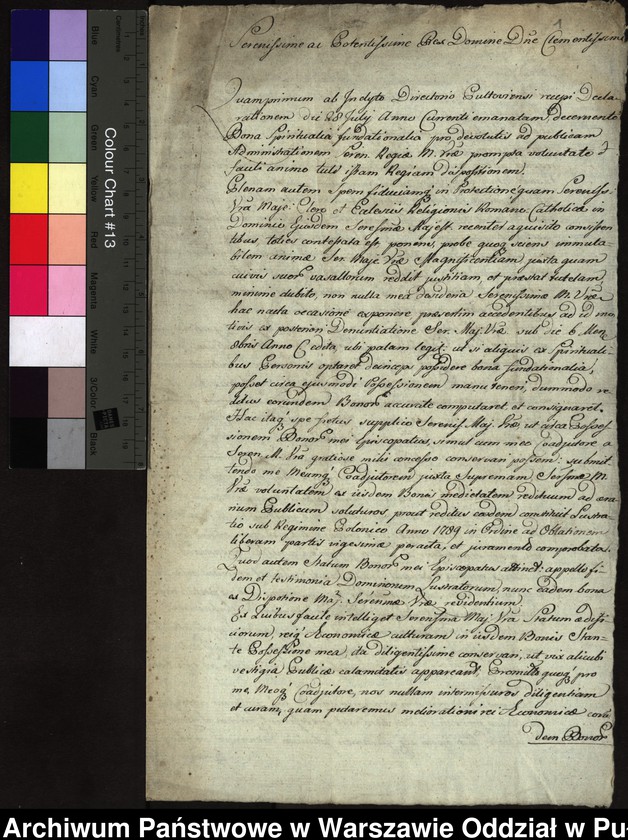 Serenissime ac Potentissime Rex Domine Dne Clementissime
Quamprimum ab Indyto Directorio Pultoviensi recepi Decla-
rationem die 28 July Anno Currenti emanatam, decernente
Bona Spiritualia fundationalia pro devolutis ad publicam
Administrationem Seren. Regiæ M. Vræ prompta voluntate et
fausti animo tuli istam Regiam dispositionem.
Plenam autem Spem fiduciamq in Protectione quam Sereniss.
Vra Maje. Clero et Eclesiis Religionis Romano Catholicæ in
Dominio Ejusdem Seresmæ Majest. recenter aquisito consisten
tibus, toties contestata est ponens, probe quoq sciens immuta-
bilem animæ Ser. Maje Vræ Magnificentiam, juxta quam
cuivis suor vasallorum reddit justitiam, et præstat tutelam,
minime dubito, non nulla mea desideria Serenissimæ M. Vræ
hac nacta occasione exponere, præsertim accedentibus ad id mo
tivis ex posteriori Denuntiatione Ser. Maj Vræ sub die 6 Men
8bris Anno C. edita, ubi palam legit. ut si aliquis ex Spirituali
bus Personis optaret deinceps possidere bona fundationalia,
posset circa ejusmodi Possessionem manuteneri, dummodo re-
ditus eorundem Bonor accurate computaret, et consignaret.
Hac itaq spe fretus supplico Serenis. Maj. Vræ, ut circa Posses-
sionem Bonor mei Episcopatus, simul cum meo Coadjutore a
Seren M. Vra gratiose mihi concesso conservari possem: submit-
tendo me Meumq Coadjutorem juxta Supremam Sersmæ M.
Vræ voluntatem ex iisdem Bonis medietatem redituum ad æra-
rium Publicum soluturos, prout reditus eosdem constituit Lustra-
tio sub Regimine Polonico Anno 1789 in Ordine ad Oblationem
liberam partis vigesimæ peracta, et juramento comprobata.
Quor autem Statum Bonor mei Episcopatus attinet: appello fi-
dem et testimonia Dominorum Lustratorum, nunc eadem bona
ex Dispotione Maj. Serenmæ Vræ revidentium
Ex Quibus facile intelliget Serensma Maj. Vra Statum ædifi-
ciorum, reiq Æconomicæ culturam in iisdem Bonis Stan-
te Possessione mea, ita diligentissime conservari, ut vix alicubi
vestigia Publicæ calamitatis appareant. Promitto quoq pro
me, Meoq Coadjutore, nos nullam intermissuros diligentiam
et curam, quam putaremus meliorationi rei Æconomicæ
dem Bonor
Colour Chart #13
Blue
Cyan
Green
Yellow
Red
Magenta
White
3/Color
Black
Centimetres
Inches
Archiwum Państwowe w Warszawie Oddział w Pu